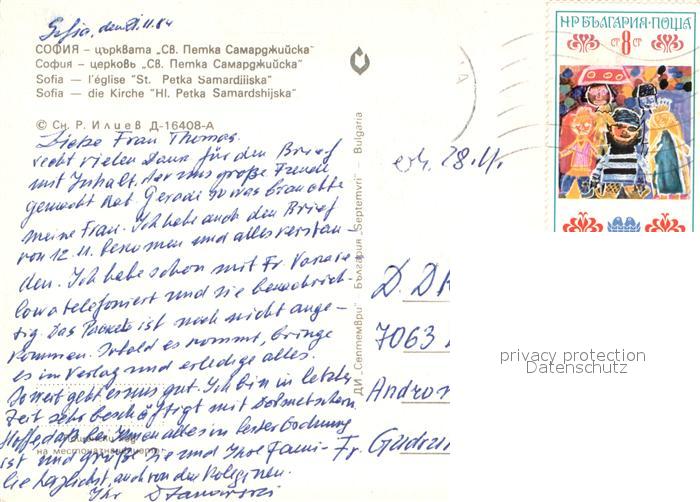 Sofia, den 21.11.84
СОФИЯ – църквата „СВ. Петка Самарджийска"
София – церковь „СВ. Петка Самарджийска"
Sofia — l'église "St. Petka Samardjiiska"
Sofia — die Kirche "Hl. Petka Samardshijska"
© Сн. Р. Илиев Д-16408-А
Liebe Frau Thomas,
recht vielen Dank für den Brief
mit Inhalt, der uns große Freude
gemacht hat. Gerade sowas brauchte
meine Frau. Ich habe auch den Brief
von 12.11. bekomen und alles verstan-
den. Ich habe schon mit Fr.
telefoniert und sie benachrich-
tig. Das Packet ist noch nicht ange-
kommen. Sobald es kommt, bringe
es in Verlag und erledige alles.
Soweit geht es uns gut. Ich bin in letzter
Zeit sehr beschäftigt mit Dolmetschern.
Hoffe, daß bei Ihnen alles in bester Ordnung
ist und grüße Sie und Ihre Fami-
lie herzlichst, auch von den Kolleginen.
Ihr
на местоназначението
ДИ „Септември" България „Septemvri" Bulgaria
НР БЪЛГАРИЯ·ПОЩА
СТ 8 СТ
erh. 28.11.
D. D
7063
Andron
Fr. Gudrun
privacy protection
Datenschutz